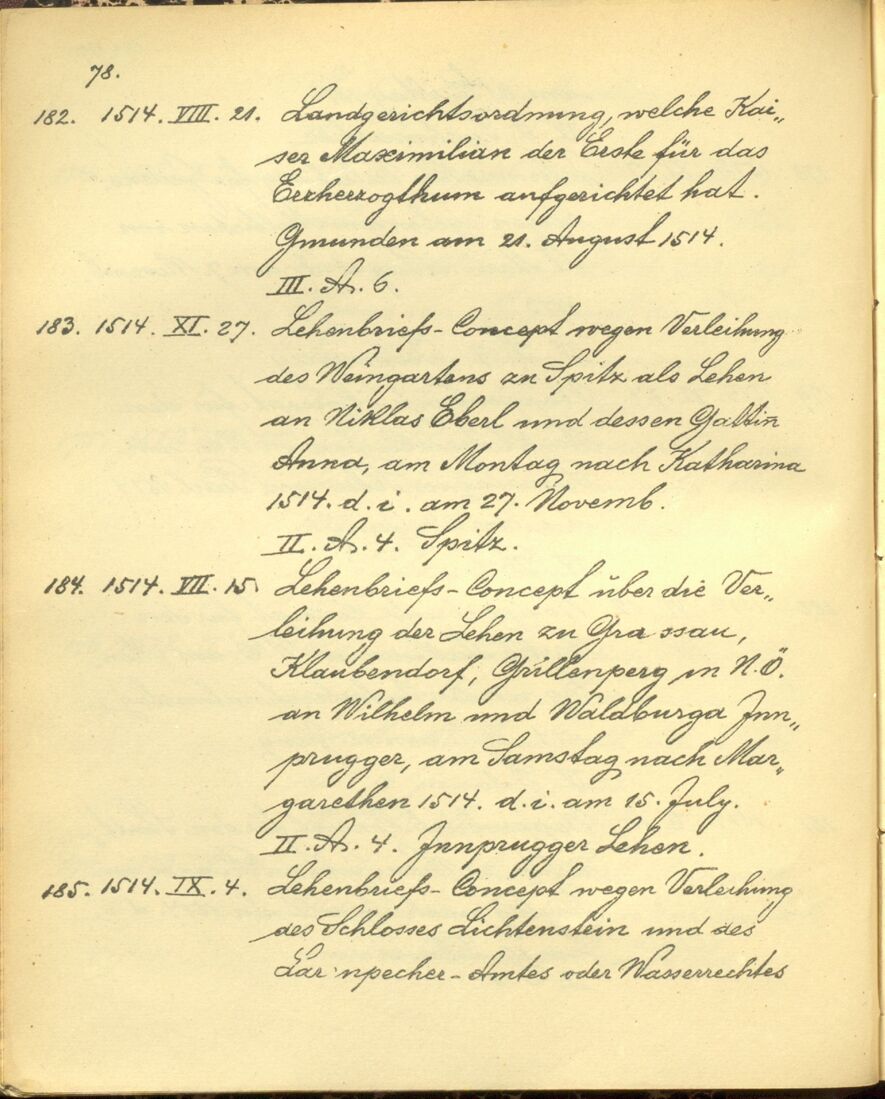 78.
182. 1514. VIII. 21. Landgerichtsordnung, welche Kai„
ser Maximilian der Erste für das
Erzherzogthum aufgerichtet hat.
Gmunden am 21. August 1514.
III. A. 6.
183. 1514. XI. 27. Lehenbriefs-Concept wegen Verleihung
des Weingartens zu Spitz als Lehen
an Niklas Eberl und dessen Gattin̄
Anna, am Montag nach Katharina
1514. d. i. am 27. Novemb.
II. A. 4. Spitz.
184. 1514. VII. 15. Lehenbriefs-Concept über die Ver„
leihung der Lehen zu Grassau,
Klaubendorf, Grillenperg in N.Ö.
an Wilhelm und Waldburga Inn„
prugger, am Samstag nach Mar„
garethen 1514. d. i. am 15. July.
II. A. 4. Innprugger Lehen.
185. 1514. IX. 4. Lehenbriefs-Concept wegen Verleihung
des Schlosses Lichtenstein und des
Amtes oder Wasserrechtes